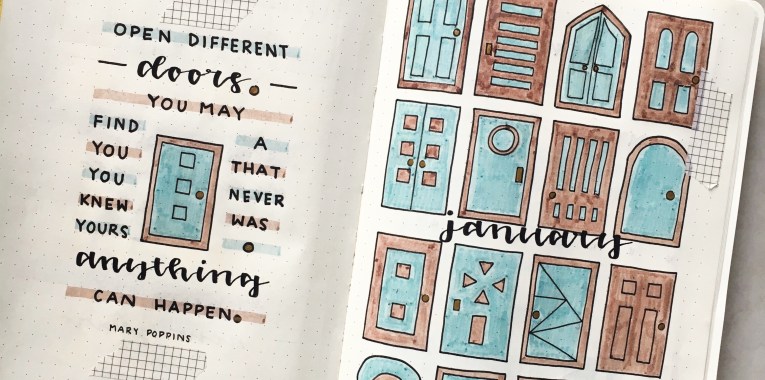 OPEN DIFFERENT
— doors. —
YOU MAY
FIND A
YOU THAT
YOU NEVER
KNEW WAS
YOURS.
anything
CAN HAPPEN.
MARY POPPINS
january